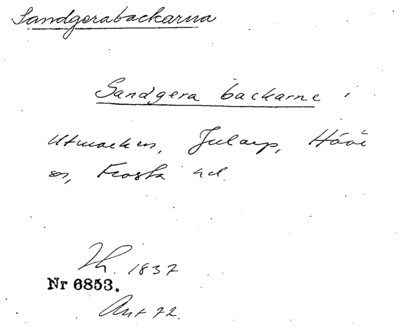 Sandgerabackarna
Sandgera backarne i
Utmarken, Jularp, Höör
sn, Frosta hd.
Lh. 1837
Nr 6853.
Avt 72.